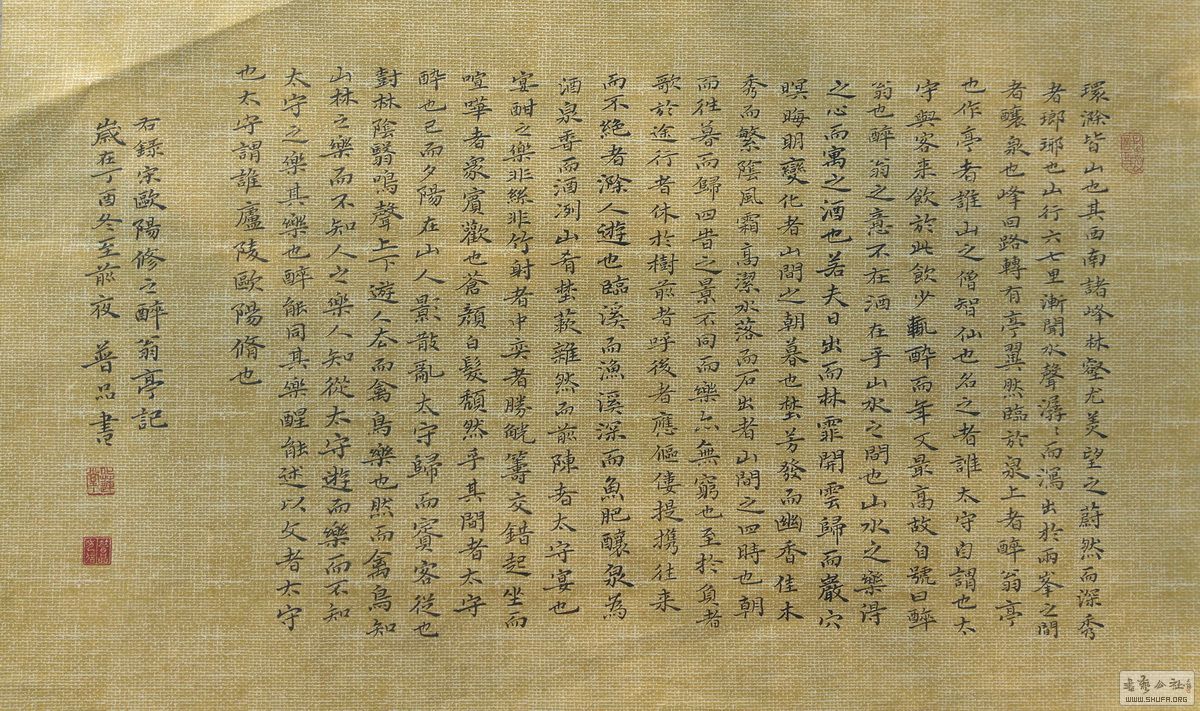 環滁皆山也其西南諸峰林壑尤美望之蔚然而深秀
者瑯瑘也山行六七里漸聞水聲潺〻而瀉出於兩峯之間
者釀泉也峰回路轉有亭翼然臨於泉上者醉翁亭
也作亭者誰山之僧智仙也名之者誰太守自謂也太
守與客来飲於此飲少輒醉而年又最高故自號曰醉
翁也醉翁之意不在酒在乎山水之間也山水之樂得
之心而寓之酒也若夫日出而林霏開雲歸而巖穴
暝晦明變化者山間之朝暮也埜芳發而幽香佳木
秀而繁陰風霜高潔水落而石出者山間之四時也朝
而往暮而歸四昔之景不同而樂亦無窮也至於負者
歌於途行者休於樹前者呼後者應傴僂提攜往来
而不絕者滁人遊也臨溪而漁溪深而魚肥釀泉為
酒泉香而酒冽山肴埜蔌雜然而前陳者太守宴也
宴酣之樂非絲非竹射者中奕者勝觥籌交錯起坐而
喧嘩者衆賓歡也蒼顏白髮頹然乎其間者太守
醉也已而夕陽在山人影散亂太守歸而賓客從也
對林陰翳鳴聲上下遊人去而禽鳥樂也然而禽鳥知
山林之樂而不知人之樂人知從太守遊而樂而不知
太守之樂其樂也醉能同其樂醒能述以文者太守
也太守謂誰廬陵歐陽脩也
右錄宋歐陽修之醉翁亭記
歲在丁酉冬至前夜 普品書
WWW.SHUFA.ORG